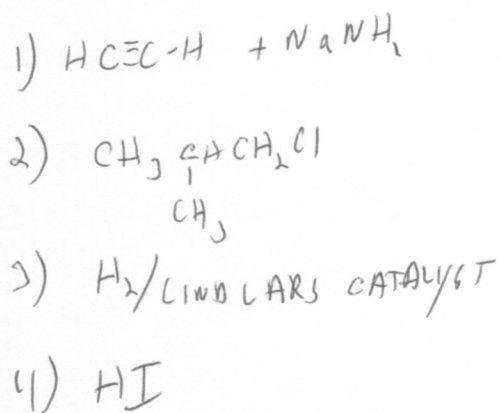 1) HC≡C-H + NaNH₂
2) CH₃CHCH₂Cl
CH₃
3) H₂/LINDLARS CATALYST
4) HI